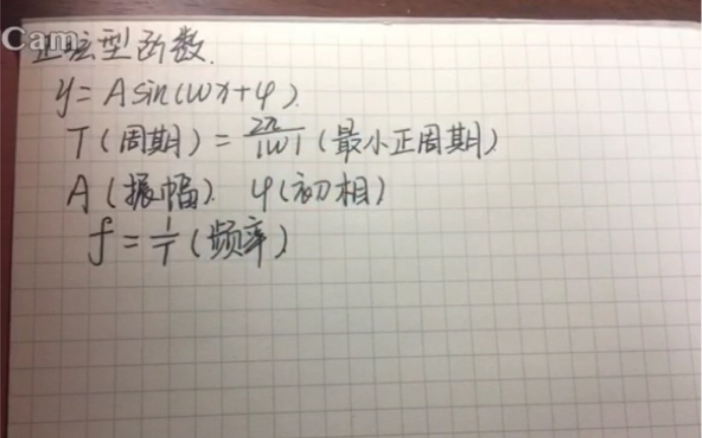 Cam
正弦型函数.
y = A sin(ωx+φ).
T(周期) = 2π/|ω| (最小正周期)
A (振幅). φ(初相)
f = 1/T (频率)